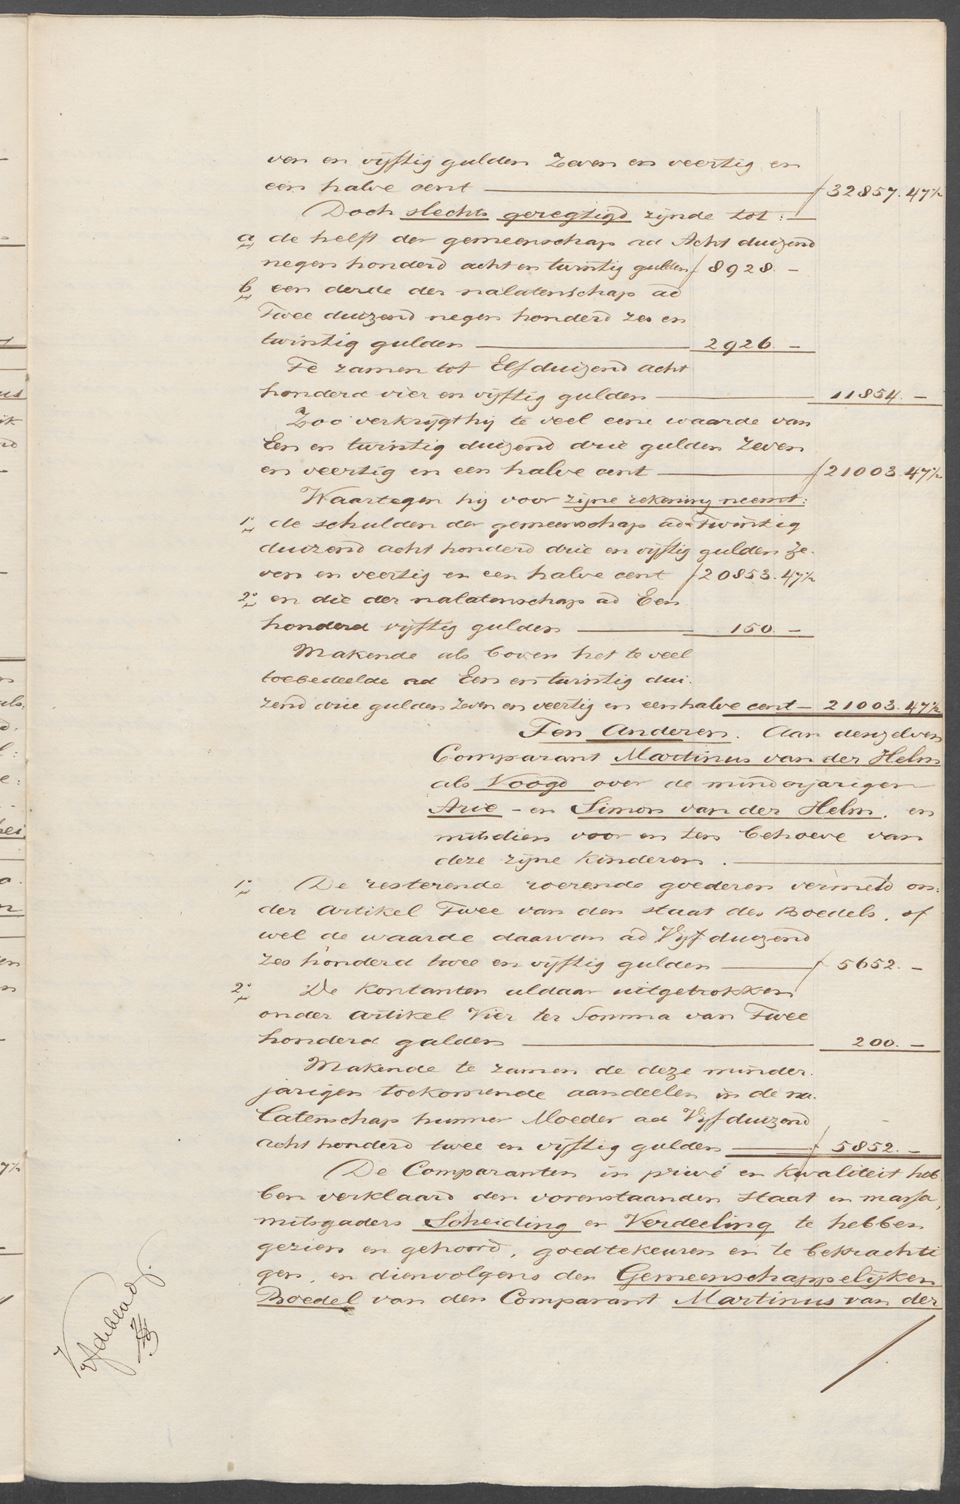 ven en vijftig gulden Zeven en veertig en
een halve cent 32857.47½
Doch slechts geregtigd zijnde tot:
a de helft der gemeenschap ad Acht duizend
negen honderd acht en twintig gulden 8928.-
b een derde der nalatenschap ad
Twee duizend negen honderd zes en
twintig gulden 2926.-
Te zamen tot Elf duizend acht
honderd vier en vijftig gulden 11854.-
Zoo verkrijgt hij te veel eene waarde van
Een en twintig duizend drie gulden Zeven
en veertig en een halve cent 21003.47½
Waartegen hij voor zijne rekening neemt:
1º de schulden der gemeenschap ad Twintig
duizend acht honderd drie en vijftig gulden ze-
ven en veertig en een halve cent 20853.47½
2º en die der nalatenschap ad Een
honderd vijftig gulden 150.-
Makende als boven het te veel
toebedeelde ad Een en twintig dui-
zend drie gulden zeven en veertig en een halve cent - 21003.47½
Ten Anderen. Aan denzelven
Comparant Martinus van der Helm
als Voogd over de minderjarigen
Arie - en Simon van der Helm, en
mitsdien voor en ten behoeve van
deze zijne kinderen.
1º De resterende roerende goederen vermeld on-
der Artikel Twee van den staat des Boedels, of
wel de waarde daarvan ad Vijf duizend
zes honderd twee en vijftig gulden 5652.-
2º De kontanten aldaar uitgetrokken
onder Artikel Vier ter Somma van Twee
honderd gulden 200.-
Makende te zamen de deze minder-
jarigen toekomende aandeelen in de na-
latenschap hunner Moeder ad Vijf duizend
acht honderd twee en vijftig gulden 5852.-
De Comparanten in privé en kwaliteit heb-
ben verklaard den vorenstaanden staat en massa,
mitsgaders Scheiding en Verdeeling te hebben
gezien en gehoord, goedtekeuren en te bekrachti-
gen, en dienvolgens den Gemeenschappelijken
Boedel van den Comparant Martinus van der